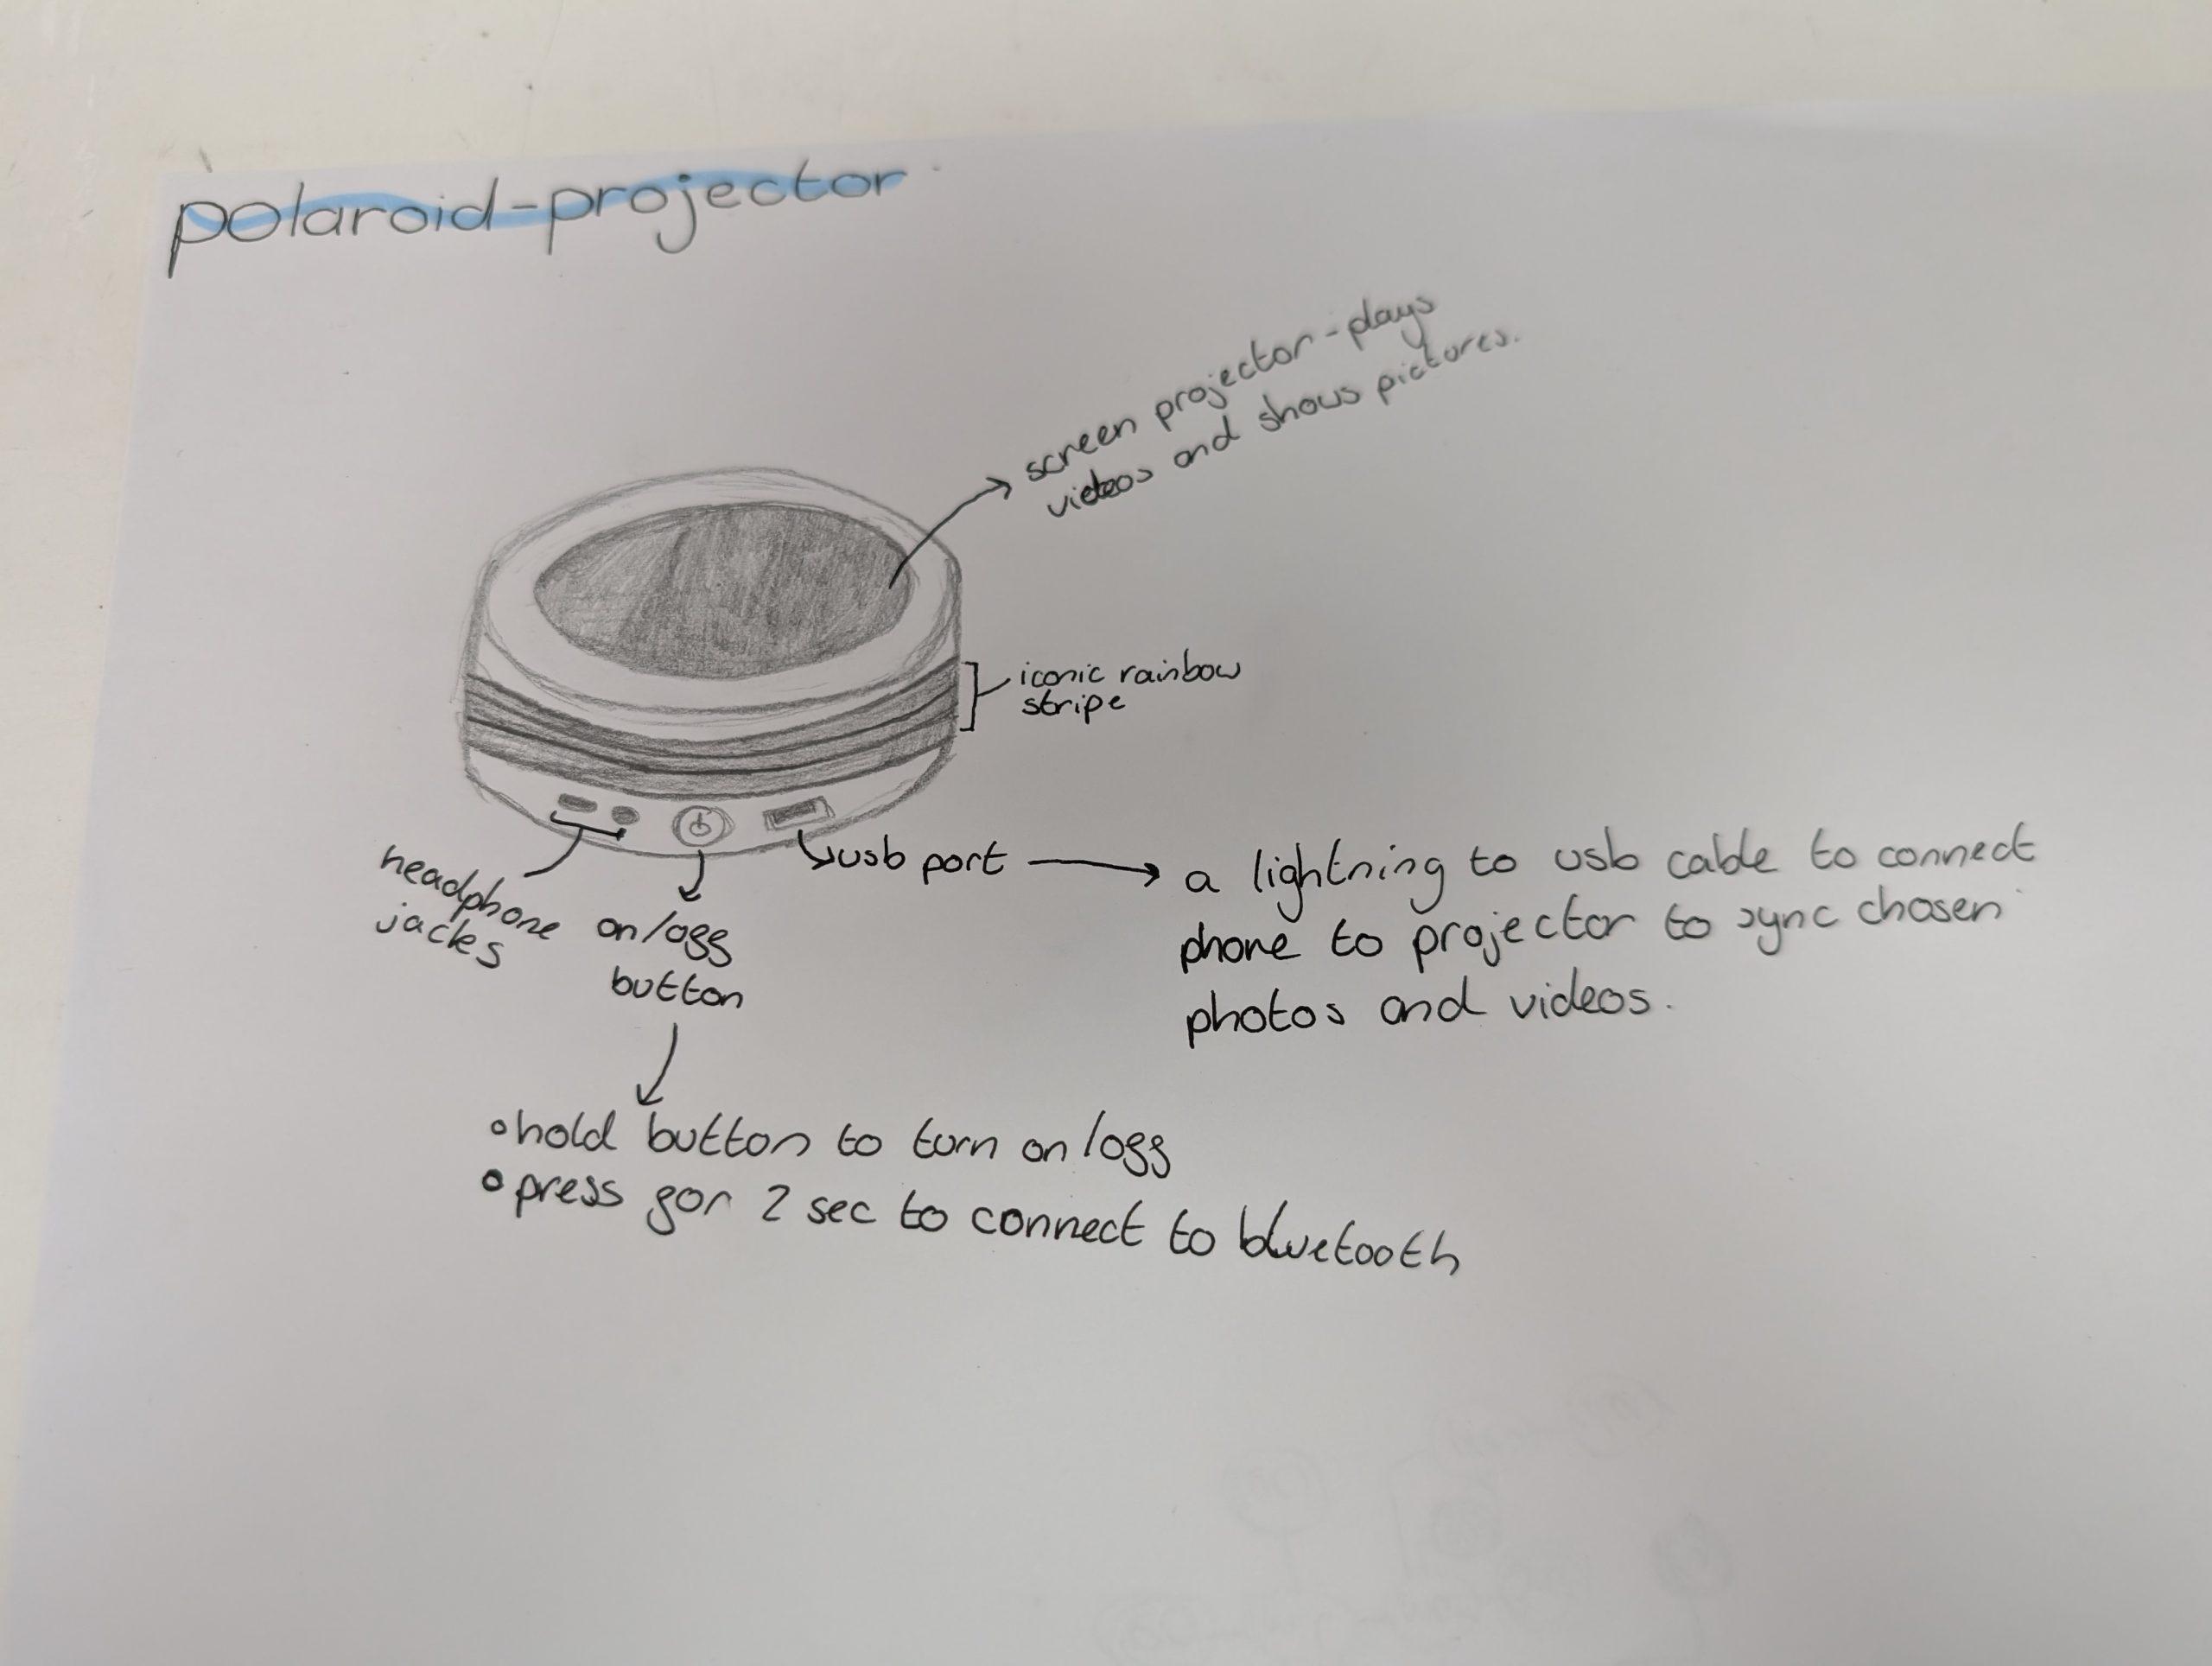 polaroid-projector
screen projector - plays
videos and shows pictures.
iconic rainbow
stripe
headphone
jacks
on/off
button
usb port
a lightning to usb cable to connect
phone to projector to sync chosen
photos and videos.
• hold button to turn on/off
• press for 2 sec to connect to bluetooth